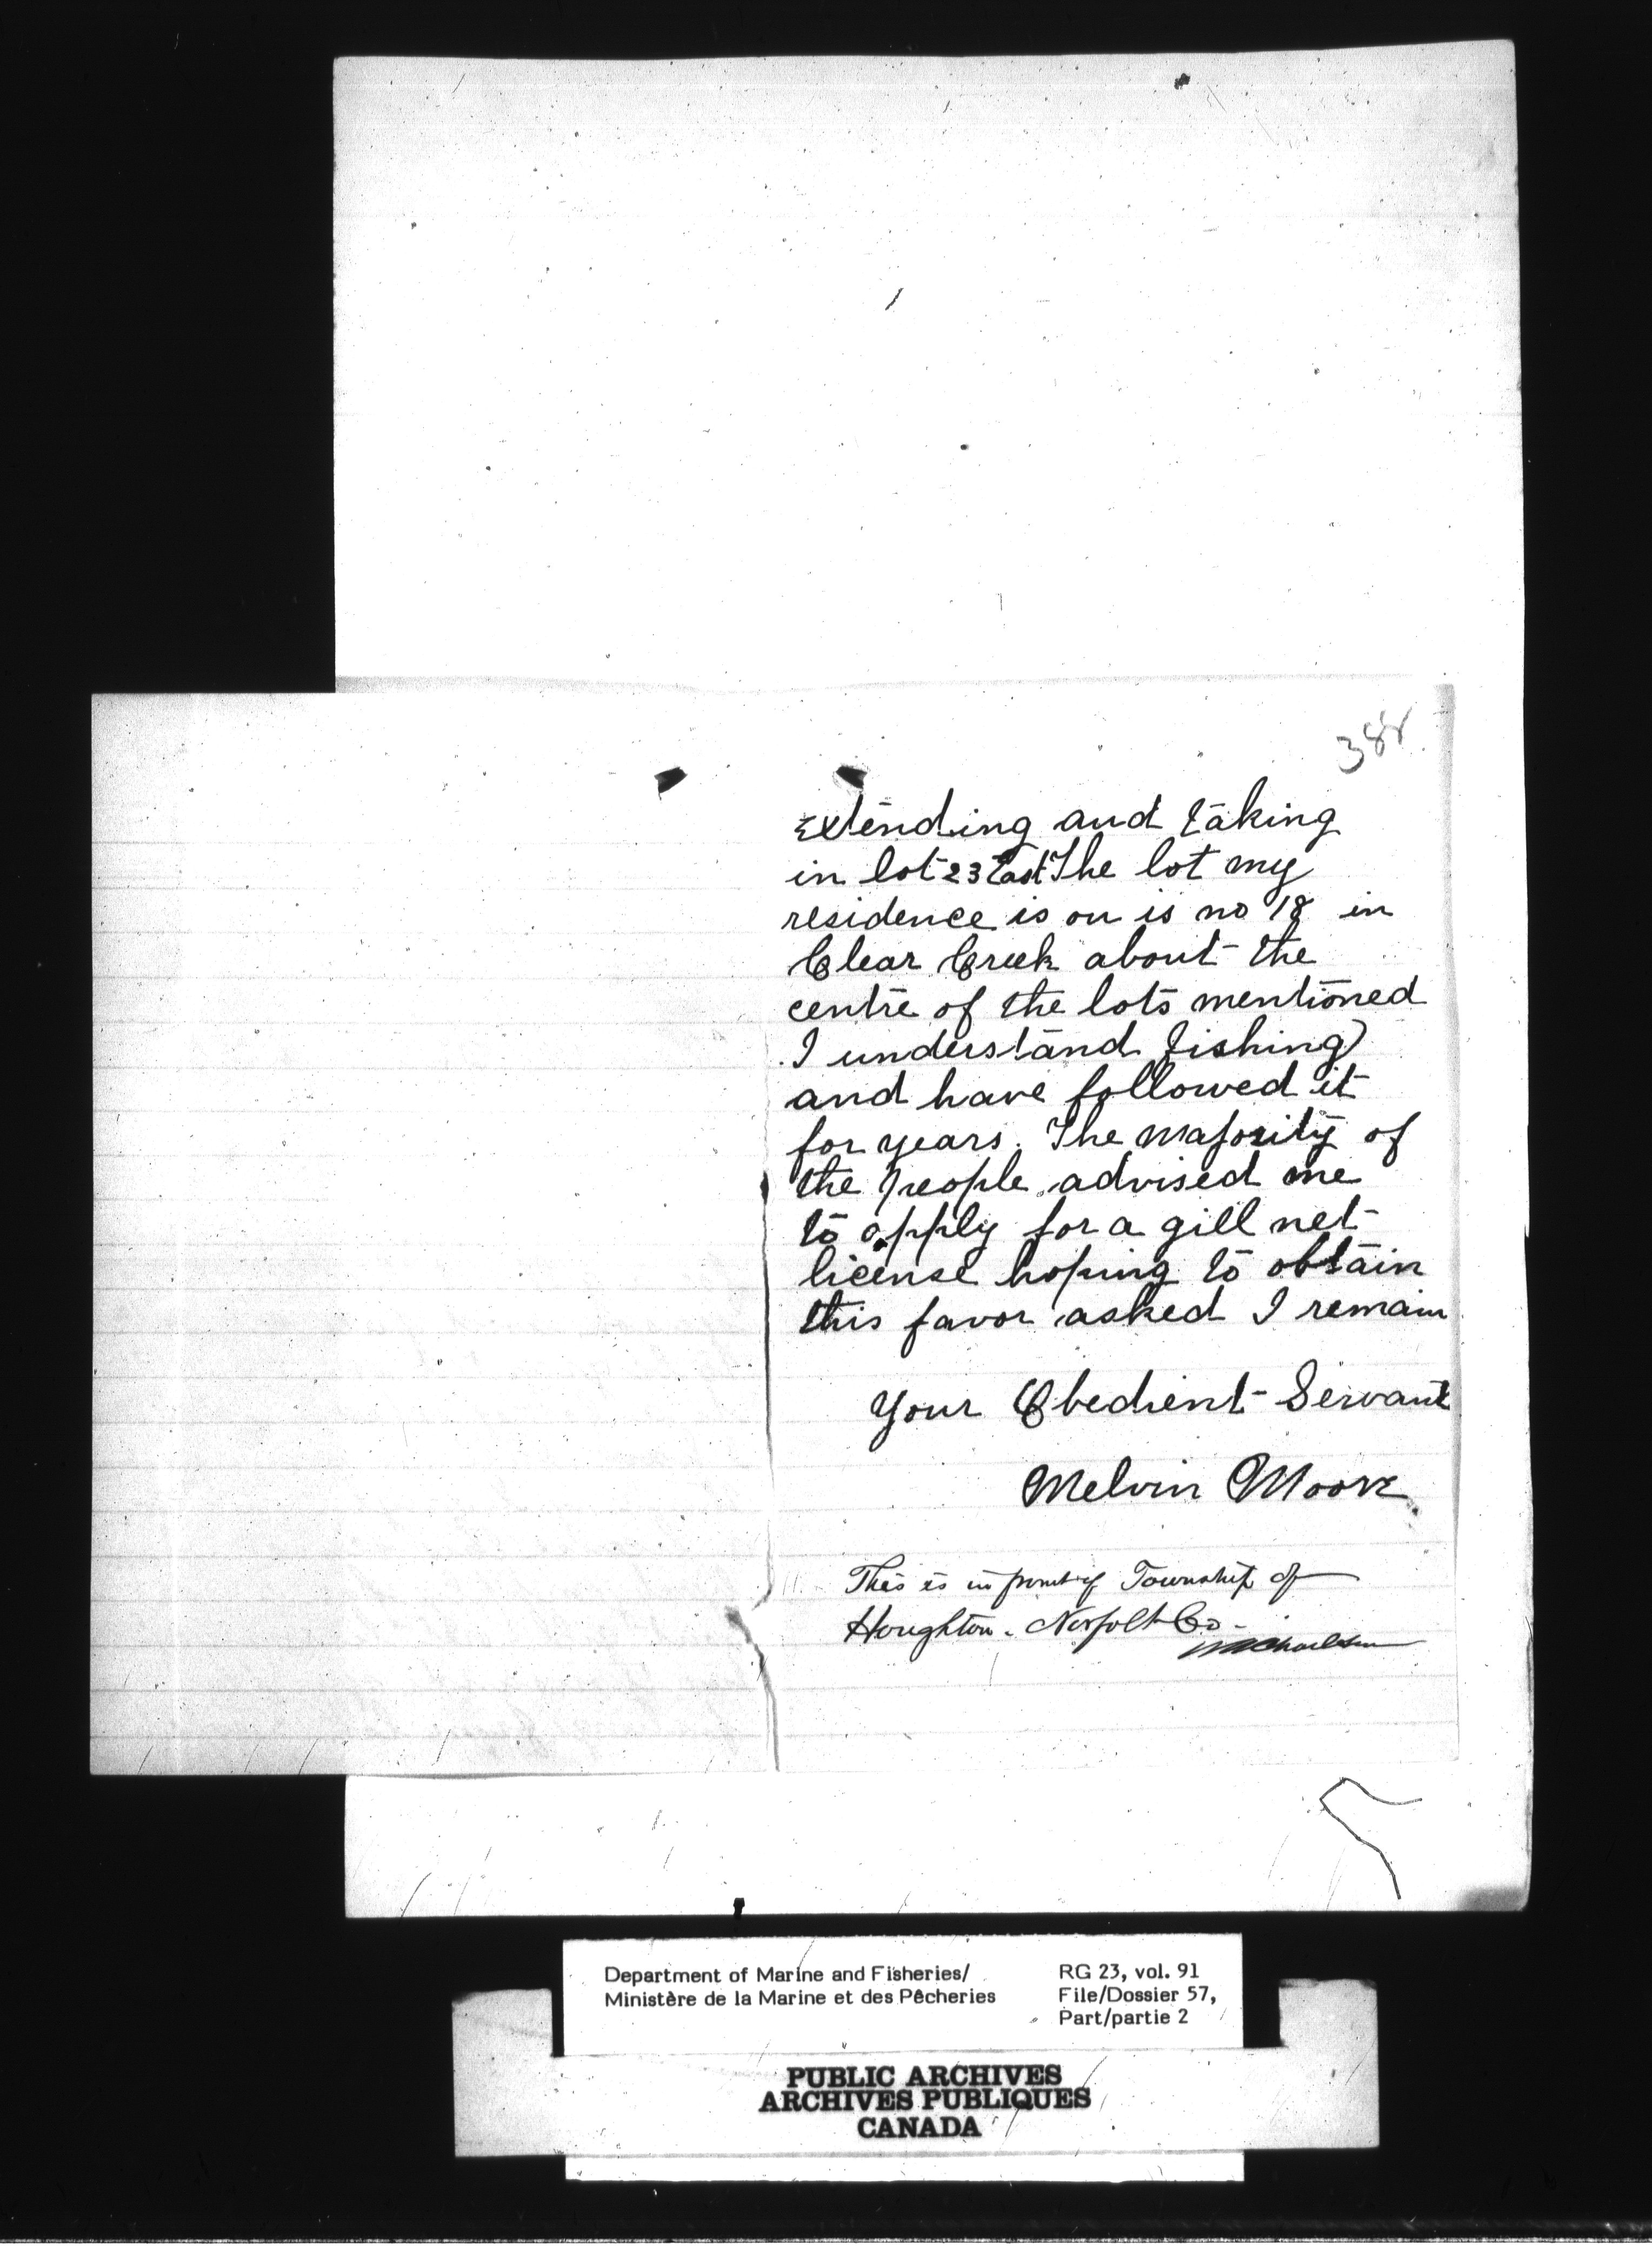 388
Extending and taking
in lot 23 East The lot my
residence is on is no 18 in
Clear Creek about the
centre of the lots mentioned
I understand fishing
and have followed it
for years. The majority of
the people advised me
to apply for a gill net
license hoping to obtain
this favor asked I remain
Your Obedient Servant
Melvin Moore
This is in front of Township of
Houghton - Norfolk Co -
Department of Marine and Fisheries/
Ministère de la Marine et des Pêcheries
RG 23, vol. 91
File/Dossier 57,
Part/partie 2
PUBLIC ARCHIVES
ARCHIVES PUBLIQUES
CANADA